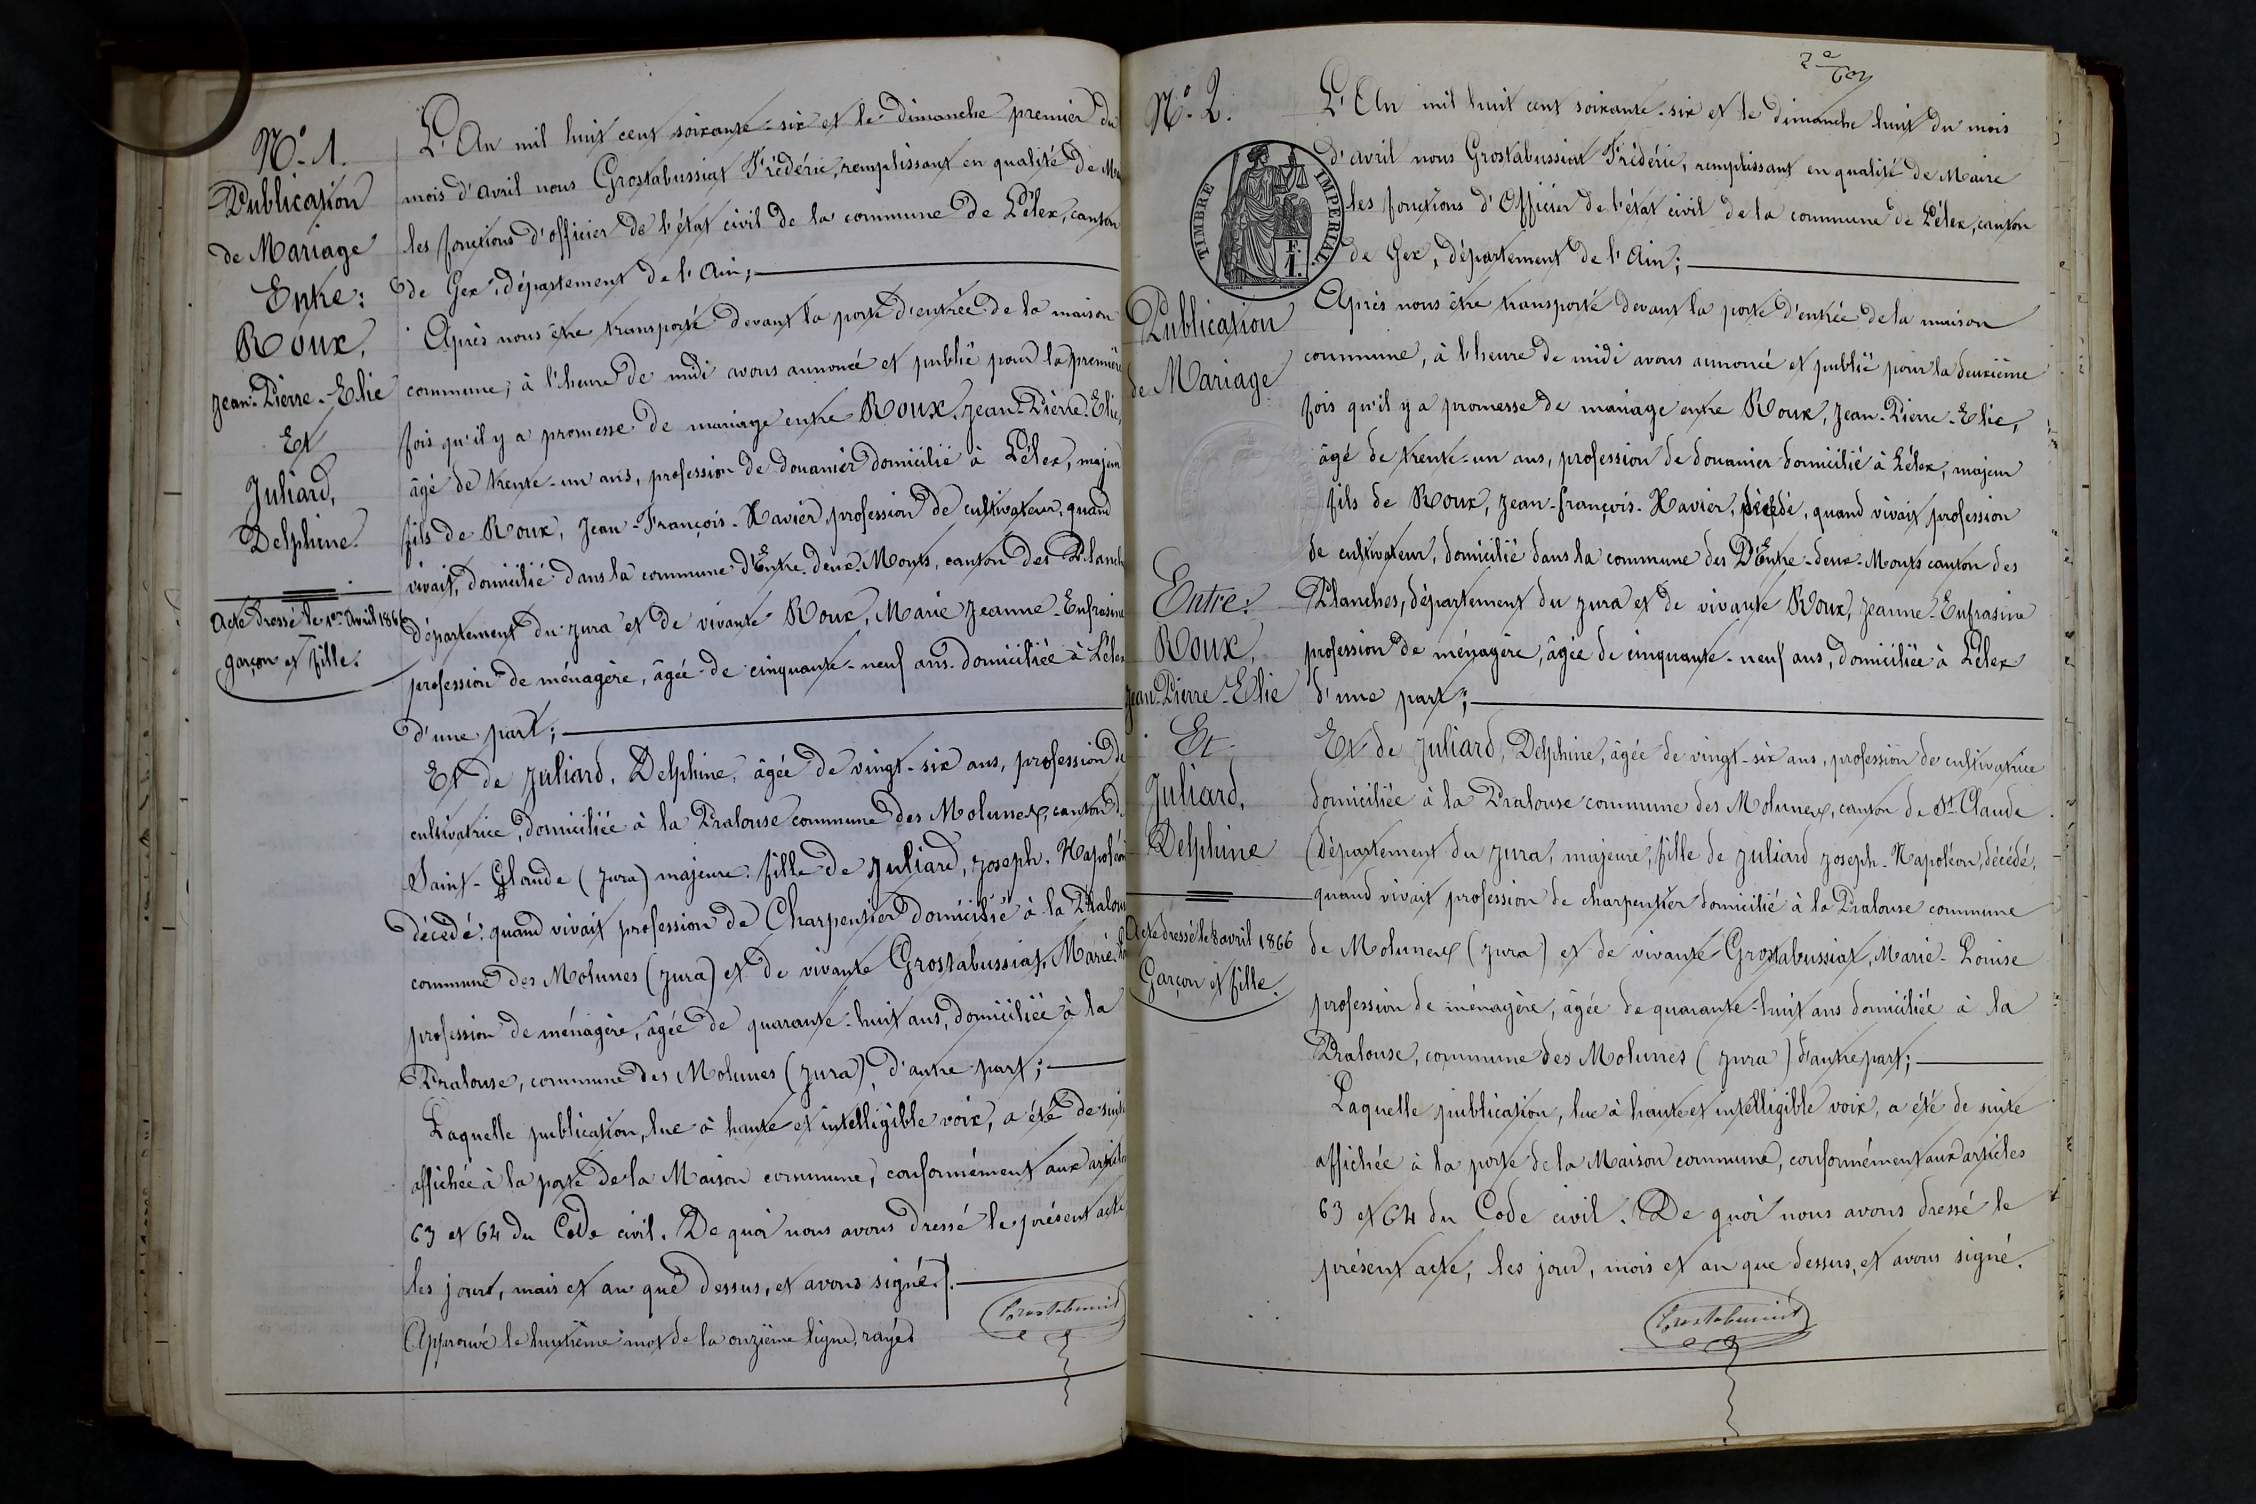 Nº. 1.
Publication
de Mariage
Entre:
Roux,
Jean-Pierre-Elie
Et
Juliard,
Delphine.
Acte dressé le 1er Avril 1866
garçon et fille.
L'An mil huit cent soixante-six et le dimanche premier du
mois d'avril nous Grostabussiat Frédéric, remplissant en qualité de
les fonctions d'officier de l'état civil de la commune de Lélex, canton
de Gex, département de l'Ain;
Après nous être transporté devant la porte d'entrée de la maison
commune, à l'heure de midi avons annoncé et publié pour la première
fois qu'il y a promesse de mariage entre Roux, Jean-Pierre-Elie,
âgé de trente-un ans, profession de douanier domicilié à Lélex, majeur
fils de Roux, Jean-François-Xavier, profession de cultivateur, quand
vivait, domicilié dans la commune d'Entre-deux-Monts, canton des Planch
département du Jura et de vivante Roux, Marie Jeanne-Eufrasine
profession de ménagère, âgée de cinquante-neuf ans domiciliée à Lélex
d'une part;
Et de Juliard, Delphine, âgée de vingt-six ans, profession de
cultivatrice, domiciliée à la Pralouse commune des Molunes, canton de
Saint-Claude (Jura) majeure fille de Juliard, Joseph-Napoléon
décédé, quand vivait profession de Charpentier domicilié à la Pralouse
commune des Molunes (Jura) et de vivante Grostabussiat, Marie-
profession de ménagère, âgée de quarante-huit ans, domiciliée à la
Pralouse, commune des Molunes (Jura), d'autre part;
Laquelle publication, lue à haute et intelligible voix, a été de suite
affichée à la porte de la Maison commune, conformément aux articles
63 et 64 du Code civil. De quoi nous avons dressé le présent acte
les jour, mois et an que dessus, et avons signé.
Approuvé le huitième mot de la onzième ligne, rayé
Grostabussiat
Nº. 2.
TIMBRE IMPERIAL
F.
1.
Publication
de Mariage
Entre:
Roux,
Jean-Pierre-Elie
Et
Juliard,
Delphine
Acte dressé le 8 avril 1866
Garçon et fille.
L'An mil huit cent soixante-six et le dimanche huit du mois
d'avril nous Grostabussiat Frédéric, remplissant en qualité de Maire
les fonctions d'Officier de l'état civil de la commune de Lélex, canton
de Gex, département de l'Ain;
Après nous être transporté devant la porte d'entrée de la maison
commune, à l'heure de midi avons annoncé et publié pour la deuxième
fois qu'il y a promesse de mariage entre Roux, Jean-Pierre-Elie,
âgé de trente-un ans, profession de douanier domicilié à Lélex, majeur
fils de Roux, Jean-françois-Xavier, décédé, quand vivait profession
de cultivateur, domicilié dans la commune des D'Entre-deux-Monts canton des
Planches, département du Jura et de vivante Roux, Jeanne-Eufrasine
profession de ménagère, âgée de cinquante-neuf ans, domiciliée à Lélex
d'une part;
Et de Juliard, Delphine, âgée de vingt-six ans, profession de cultivatrice
domiciliée à la Pralouse commune des Molunes, canton de St Claude
(département du Jura, majeure, fille de Juliard Joseph-Napoléon, décédé,
quand vivait profession de charpentier domicilié à la Pralouse commune
de Molunes (Jura) et de vivante Grostabussiat, Marie-Louise
profession de ménagère, âgée de quarante-huit ans domiciliée à la
Pralouse, commune des Molunes (Jura) d'autre part;
Laquelle publication, lue à haute et intelligible voix, a été de suite
affichée à la porte de la Maison commune, conformément aux articles
63 et 64 du Code civil. De quoi nous avons dressé le
présent acte, les jour, mois et an que dessus, et avons signé.
Grostabussiat